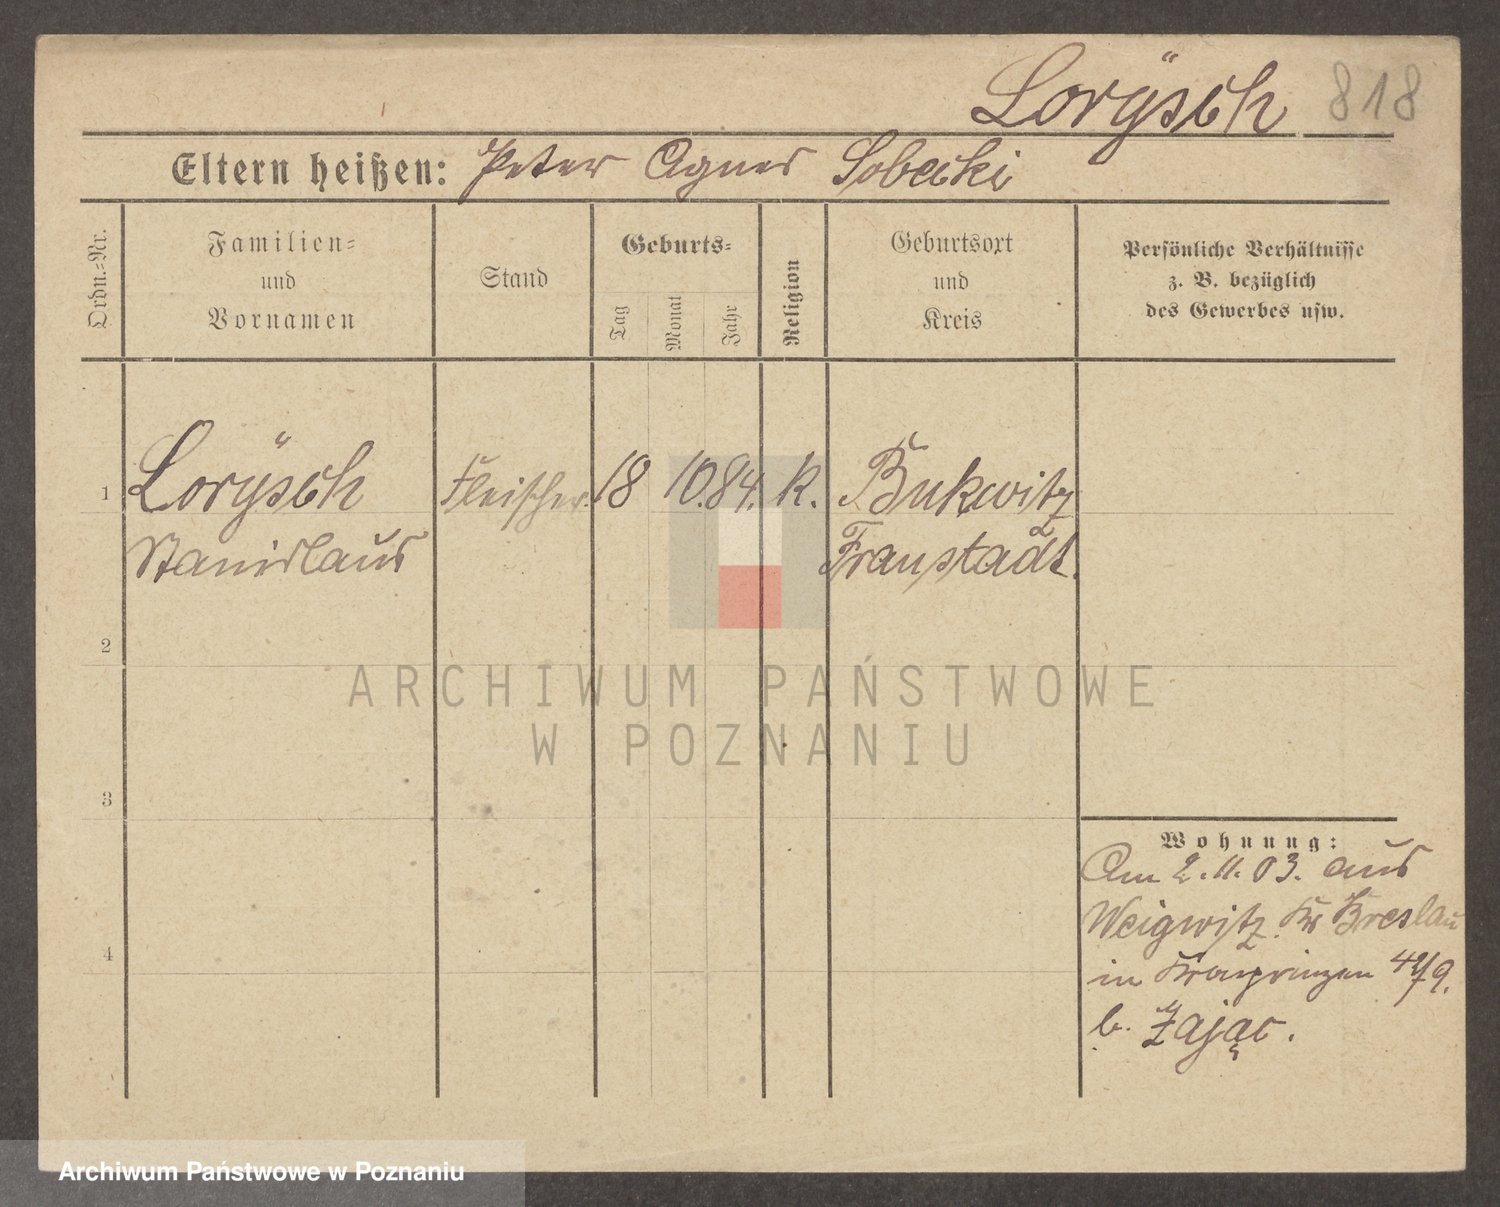 Lorÿsch 818
Eltern heißen: Peter Agnes Sobecki
Ordn.-Nr.
Familien-
und
Vornamen
Stand
Geburts-
Tag
Monat
Jahr
Religion
Geburtsort
und
Kreis
Persönliche Verhältnisse
z. B. bezüglich
des Gewerbes usw.
1 Lorÿsch Fleischer. 18 10. 84. K. Bukwitz
Stanislaus Fraustadt.
2
ARCHIWUM PAŃSTWOWE
W POZNANIU
3
Wohnung:
Am 2.11.03. aus
Weigwitz. Kr Breslau
4
in Kronprinzen
b. Zając.
Archiwum Państwowe w Poznaniu